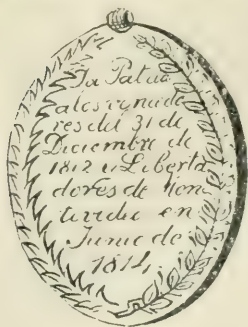 La Patria
a los vencedo
res del 31 de
Diciembre de
1812 y Liberta
dores de Mon
tevideo en
Junio de
1814